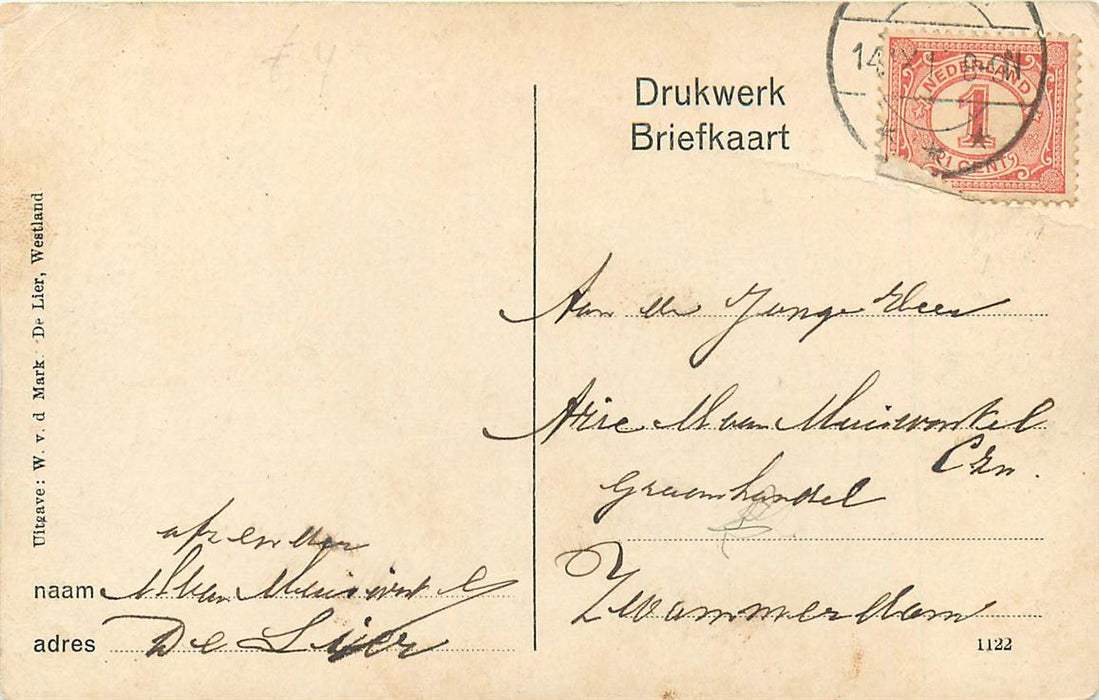 Drukwerk
Briefkaart
NEDERLAND
1
1 CENT
Uitgave: W. v. d Mark. De Lier, Westland
Aan de Jonge Heer
Arie M van Muiswinkel
Czn.
Graanhandel
Zwammerdam
afzender
naam M van Muiswinkel
adres De Lier
1122